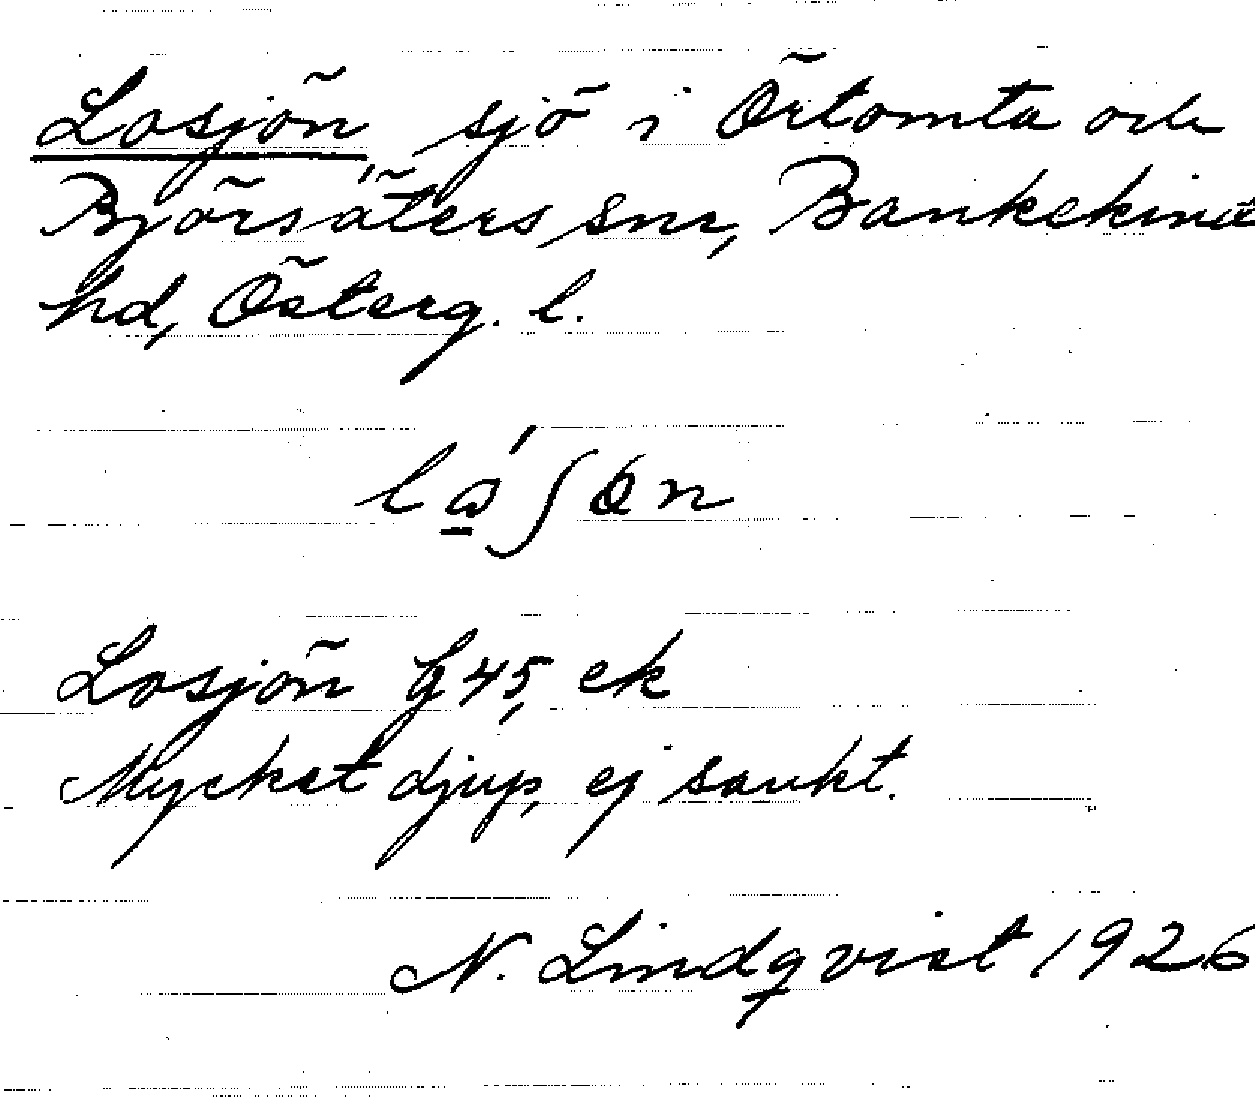 Losjön sjö i Örtomta och
Björsäters snr, Bankekind
hd, Österg. l.
Losjön G45, ek
Mycket djup, ej sankt.
N. Lindqvist 1926